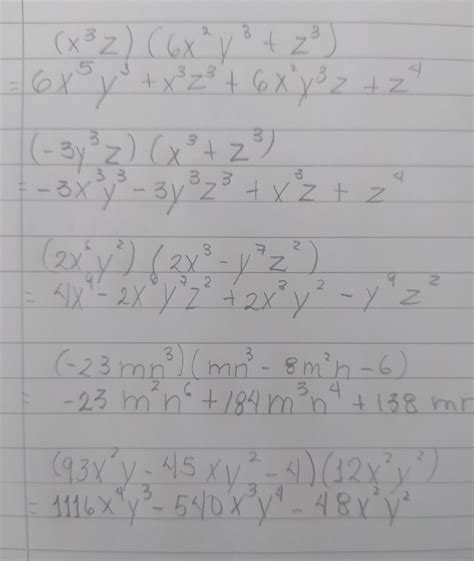 (x³z) (6x²y³ + z³)
= 6x⁵y³ + x³z³ + 6x²y³z + z⁴
(-3y³z) (x³ + z³)
= -3x³y³ - 3y³z³ + x³z + z⁴
(2x⁶y²) (2x³ - y⁷z²)
= 4x⁹ - 2x⁶y⁷z² + 2x³y² - y⁹z²
(-23mn³)(mn³ - 8m²n - 6)
= -23m²n⁶ + 184m³n⁴ + 138 mn
(93x²y - 45xy² - 4)(12x²y²)
= 1116x⁴y³ - 540x³y⁴ - 48x²y²